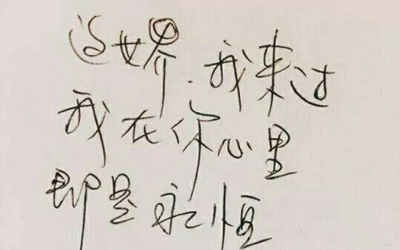 这世界.我来过
我在你心里
即是永恒